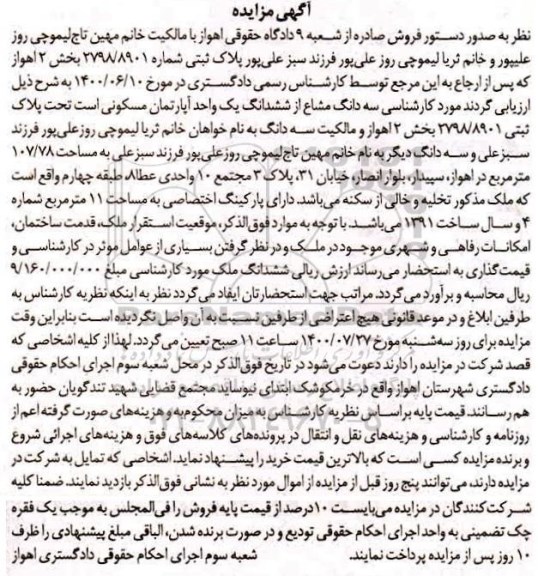 آگهی مزایده
نظر به صدور دستور فروش صادره از شعبه ۹ دادگاه حقوقی اهواز با مالکیت خانم مهین تاج لیموچی روز
علیپور و خانم ثریا لیموچی روز علی‌پور فرزند سبز علی‌پور پلاک ثبتی شماره ۲۷۹۸/۸۹۰۱ بخش ۲ اهواز
که پس از ارجاع به این مرجع توسط کارشناس رسمی دادگستری در مورخ ۱۴۰۰/۰۶/۱۰ به شرح ذیل
ارزیابی گردند مورد کارشناسی سه دانگ مشاع از ششدانگ یک واحد آپارتمان مسکونی است تحت پلاک
ثبتی ۲۷۹۸/۸۹۰۱ بخش ۲ اهواز و مالکیت سه دانگ به نام خواهان خانم ثریا لیموچی روزعلی‌پور فرزند
سبزعلی و سه دانگ دیگر به نام خانم مهین تاج‌لیموچی روزعلی‌پور فرزند سبز علی به مساحت ۱۰۷/۷۸
مترمربع در اهواز، سپیدار، بلوار انصار، خیابان ۳۱، پلاک ۳ مجتمع ۱۰ واحدی عطا۸، طبقه چهارم واقع است
که ملک مذکور تخلیه و خالی از سکنه می‌باشد. دارای پارکینگ اختصاصی به مساحت ۱۱ مترمربع شماره
۴ و سال ساخت ۱۳۹۱ می‌باشد. با توجه به موارد فوق‌الذکر، موقعیت استقرار ملک، قدمت ساختمان،
امکانات رفاهی و شهری موجود در ملک و در نظر گرفتن بسیاری از عوامل موثر در کارشناسی و
قیمت‌گذاری به استحضار می‌رساند ارزش ریالی ششدانگ ملک مورد کارشناسی مبلغ ۹/۱۶۰/۰۰۰/۰۰۰
ریال محاسبه و برآورد می‌گردد. مراتب جهت استحضارتان ایفاد می‌گردد نظر به اینکه نظریه کارشناس به
طرفین ابلاغ و در موعد قانونی هیچ اعتراضی از طرفین نسبت به آن واصل نگردیده است بنابراین وقت
مزایده برای روز سه‌شنبه مورخ ۱۴۰۰/۰۷/۲۷ ساعت ۱۱ صبح تعیین می‌گردد. لهذا از کلیه اشخاصی که
قصد شرکت در مزایده را دارند دعوت می‌شود در تاریخ فوق‌الذکر در محل شعبه سوم اجرای احکام حقوقی
دادگستری شهرستان اهواز واقع در خرمکوشک ابتدای نیوساید مجتمع قضایی شهید تندگویان حضور به
هم رسانند. قیمت پایه براساس نظریه کارشناس به میزان محکوم‌به و هزینه‌های صورت گرفته اعم از
روزنامه و کارشناسی و هزینه‌های نقل و انتقال در پرونده‌های کلاسه‌های فوق و هزینه‌های اجرائی شروع
و برنده مزایده کسی است که بالاترین قیمت خرید را پیشنهاد نماید. اشخاصی که تمایل به شرکت در
مزایده دارند، می‌توانند پنج روز قبل از مزایده از اموال مورد نظر به نشانی فوق‌الذکر بازدید نمایند. ضمنا کلیه
شرکت‌کنندگان در مزایده می‌بایست ۱۰درصد از قیمت پایه فروش را فی‌المجلس به موجب یک فقره
چک تضمینی به واحد اجرای احکام حقوقی تودیع و در صورت برنده شدن، الباقی مبلغ پیشنهادی را ظرف
۱۰ روز پس از مزایده پرداخت نمایند. شعبه سوم اجرای احکام حقوقی دادگستری اهواز